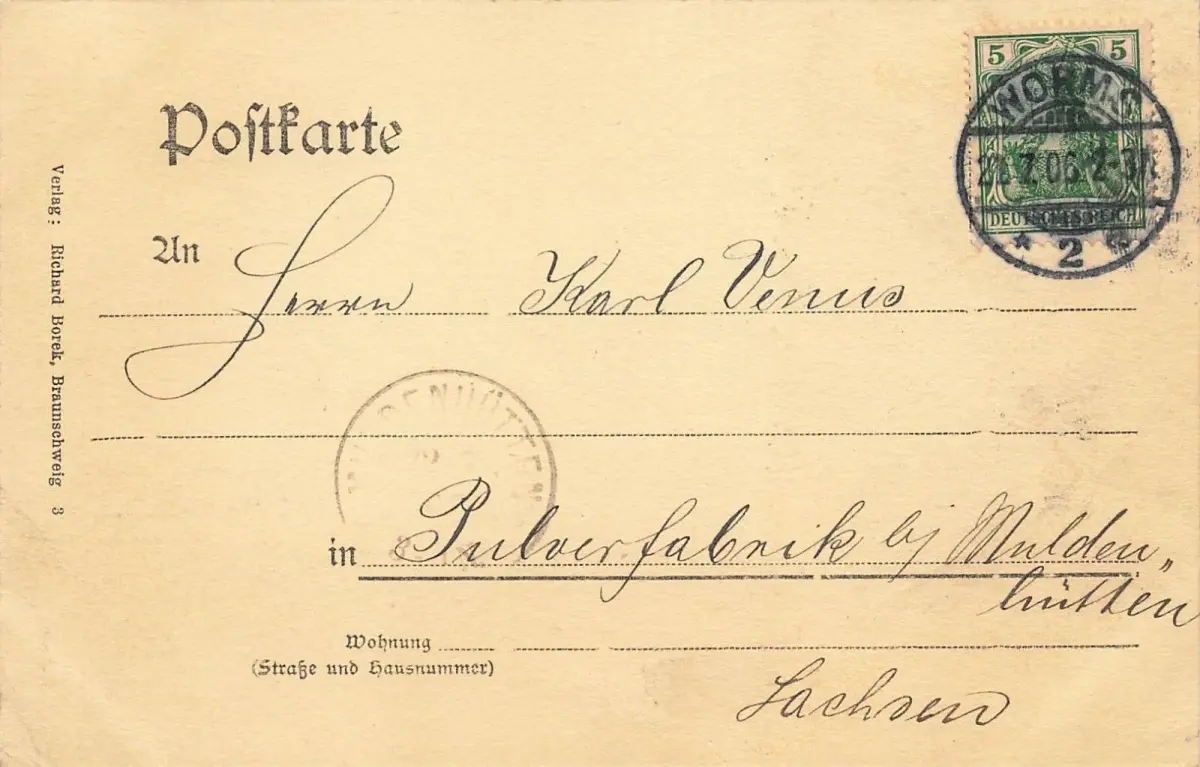 5 5
WORMS
7.06. 2-3N.
DEUTSCHES REICH
* 2
Postkarte
An
Herrn Karl Venus
MULDENHÜTTEN
in Pulverfabrik bj Mulden„
hütten
Wohnung
(Straße und Hausnummer)
Sachsen
Verlag: Richard Borek, Braunschweig 3